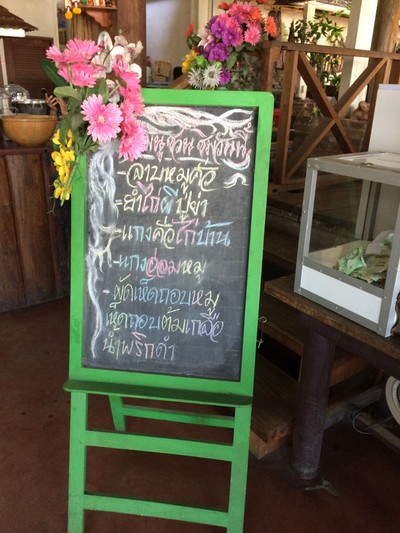 เมนูชวนชิมวันนี้
-ลาบหมูคั่ว
-ยำไก่ผีปู่ย่า
-แกงคั่วไก่บ้าน
-แกงออมหมู
-ผัดเห็ดถอบหมู
เห็ดถอบต้มเกลือ
น้ำพริกดำ